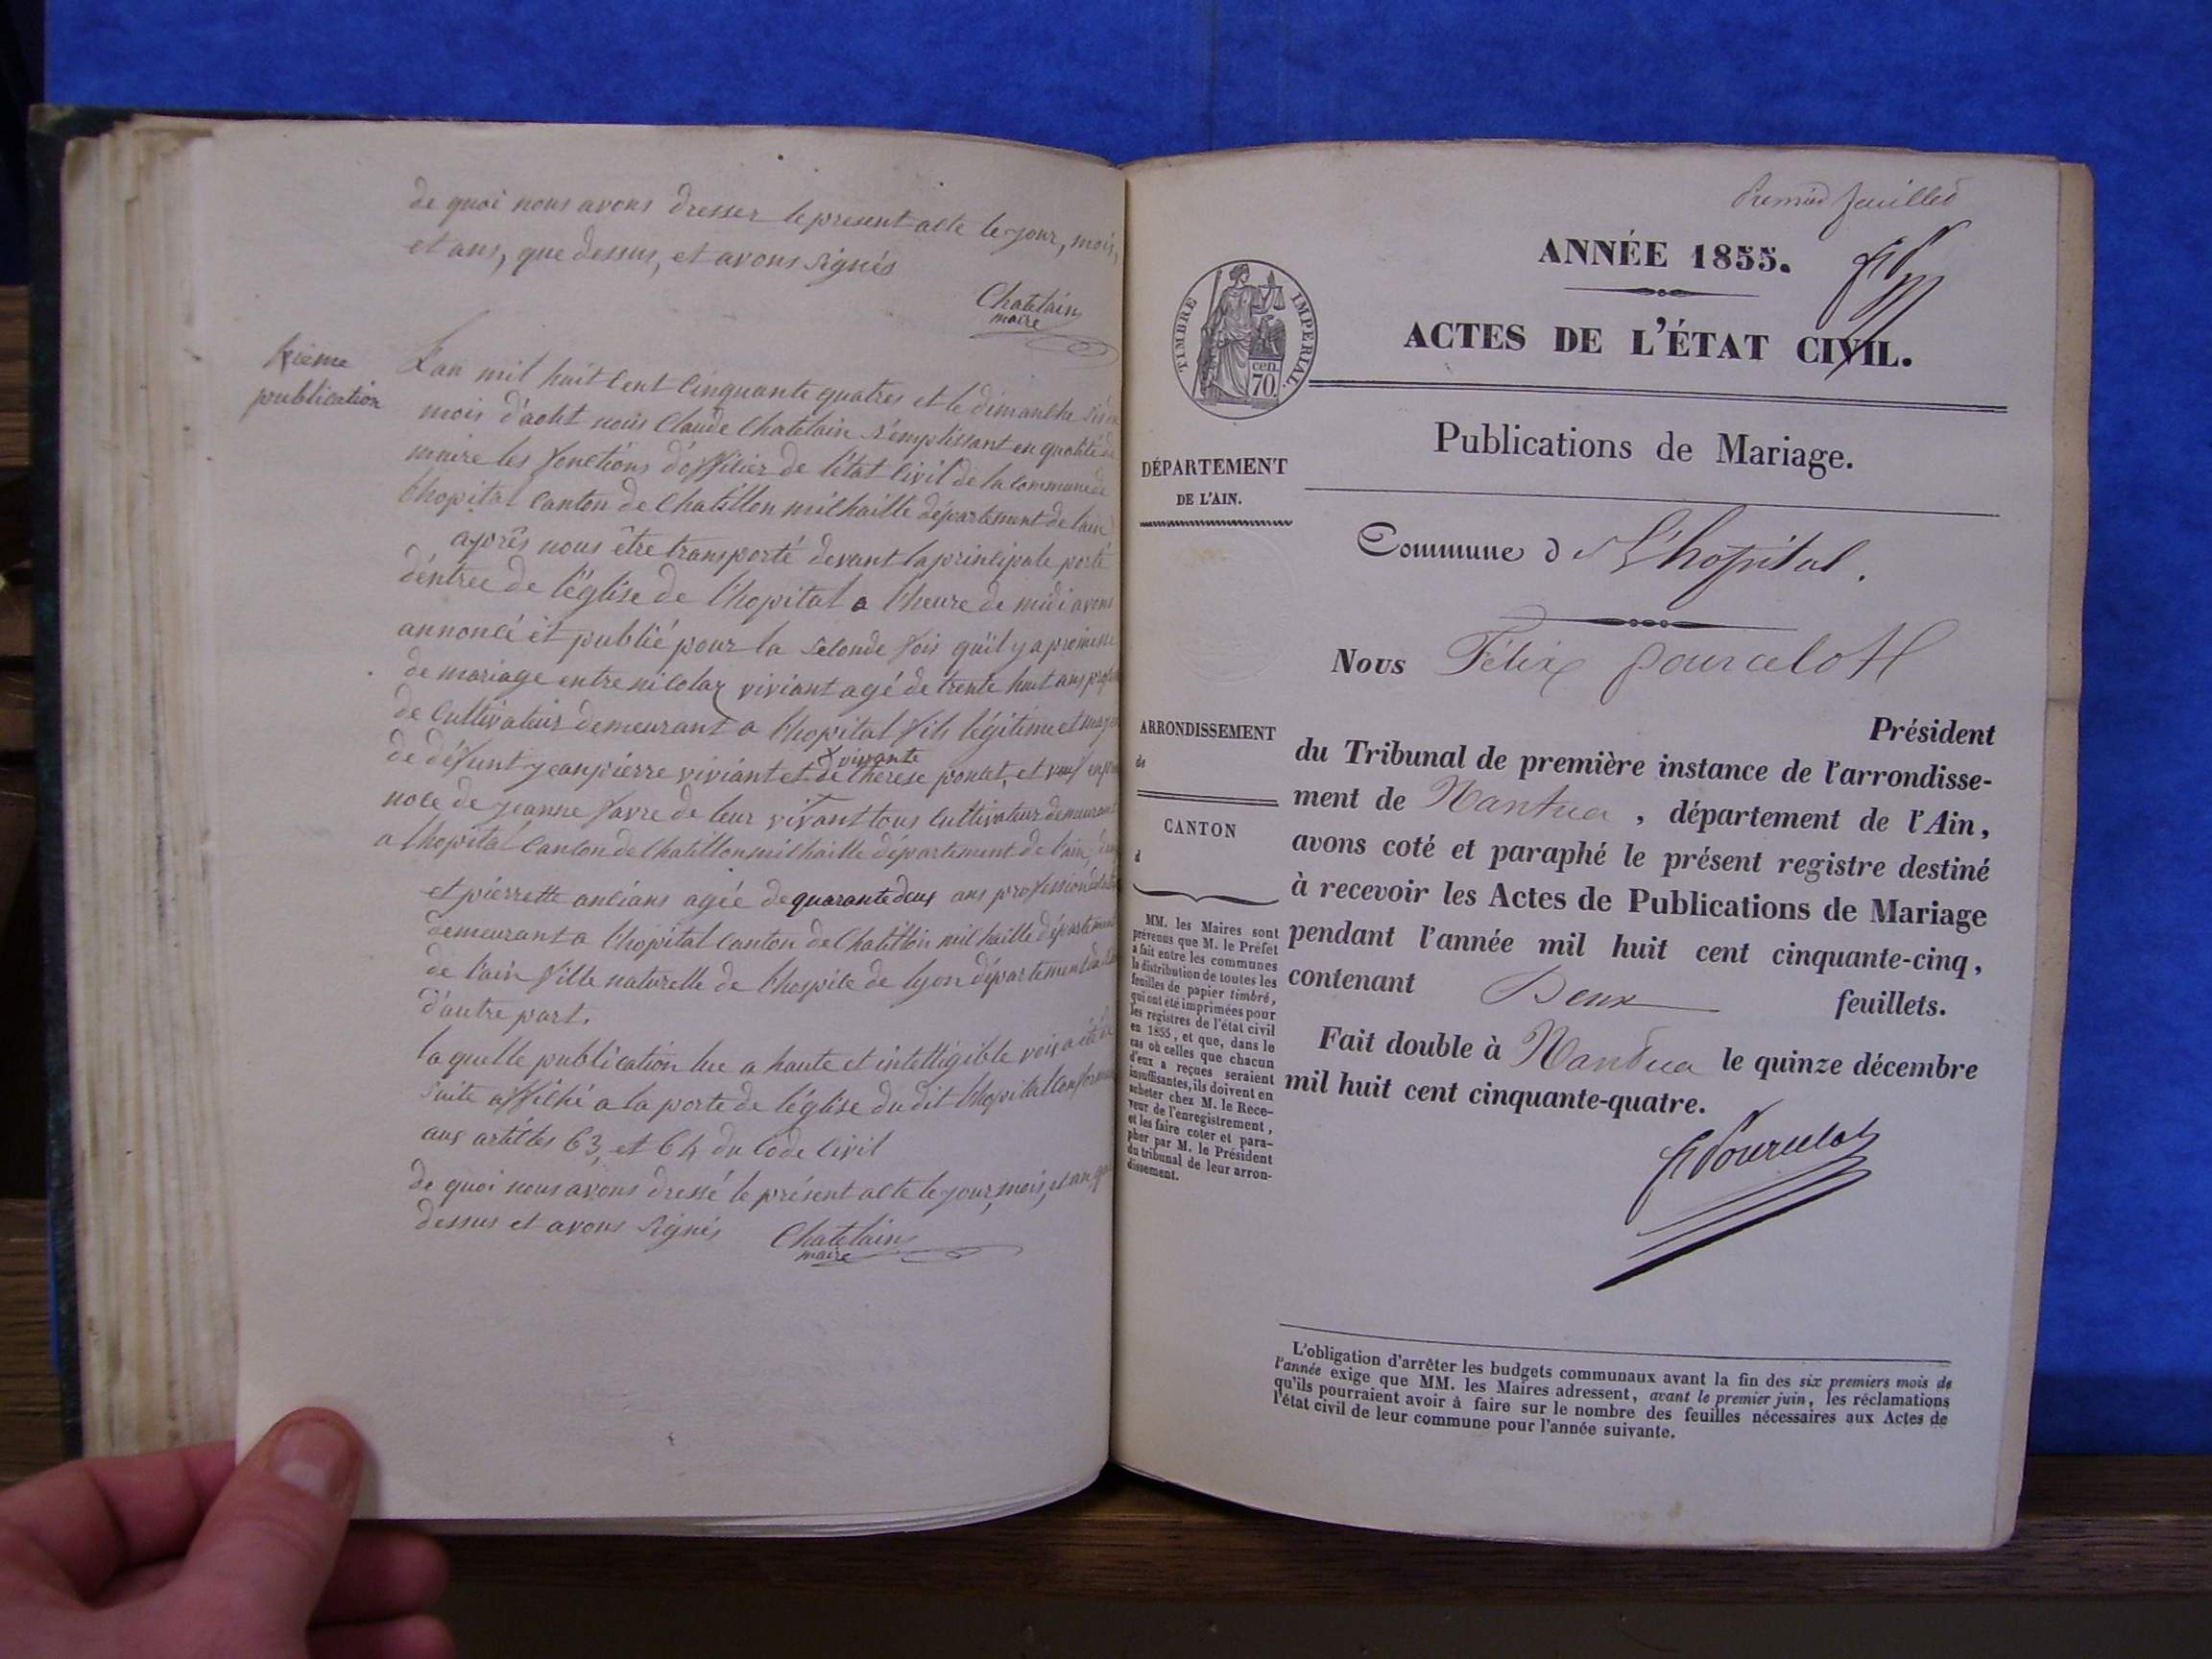 de quoi nous avons dresser le present acte le jour, mois,
et ans, que dessus, et avons signés
Chatelain
maire
publication
L'an mil huit cent cinquante quatres et le dimanche
mois d'août nous Claude Chatelain remplissant en qualité de
maire les fonctions d'officier de l'état civil de la commune de
l'hopital canton de Chatillon milhaille département de l'ain
après nous être transporté devant la principale porte
d'entrée de l'église de l'hopital a l'heure de midi avons
annoncé et publié pour la seconde fois qu'il y a promesse
de mariage entre nicolas viviant agé de trente huit ans
de cultivateur demeurant a l'hopital fils légitime et
vivante
de défunt jeanpierre viviant et de therese poncet, et veuf en
noce de jeanne favre de leur vivant tous cultivateur demeurant
a l'hopital canton de Chatillon milhaille département de l'ain,
et pierrette anlians agée de quarante deux ans profession
demeurant a l'hopital canton de Chatillon milhaille département
de l'ain fille naturelle de l'hospice de lyon département
d'autre part.
laquelle publication lue a haute et intelligible voix a été
suite affiché a la porte de l'église du dit l'hopital
aux articles 63, et 64 du Code Civil
de quoi nous avons dressé le présent acte le jour, mois, et an, que
dessus et avons signés Chatelain
maire
Premier feuillet
ANNÉE 1855.
ACTES DE L'ÉTAT CIVIL.
TIMBRE IMPERIAL.
cen.
70.
Publications de Mariage.
DÉPARTEMENT
DE L'AIN.
Commune de L'hopital.
Nous Félix Pourcelot
Président
du Tribunal de première instance de l'arrondisse-
ment de Nantua, département de l'Ain,
avons coté et paraphé le présent registre destiné
à recevoir les Actes de Publications de Mariage
pendant l'année mil huit cent cinquante-cinq,
contenant Deux feuillets.
Fait double à Nantua le quinze décembre
mil huit cent cinquante-quatre.
F Pourcelot
ARRONDISSEMENT
de
CANTON
d
MM. les Maires sont
prévenus que M. le Préfet
a fait entre les communes
la distribution de toutes les
feuilles de papier timbré,
qui ont été imprimées pour
les registres de l'état civil
en 1855, et que, dans le
cas où celles que chacun
d'eux a reçues seraient
insuffisantes, ils doivent en
acheter chez M. le Rece-
veur de l'enregistrement,
et les faire coter et para-
pher par M. le Président
du tribunal de leur arron-
dissement.
L'obligation d'arrêter les budgets communaux avant la fin des six premiers mois de
l'année exige que MM. les Maires adressent, avant le premier juin, les réclamations
qu'ils pourraient avoir à faire sur le nombre des feuilles nécessaires aux Actes de
l'état civil de leur commune pour l'année suivante.